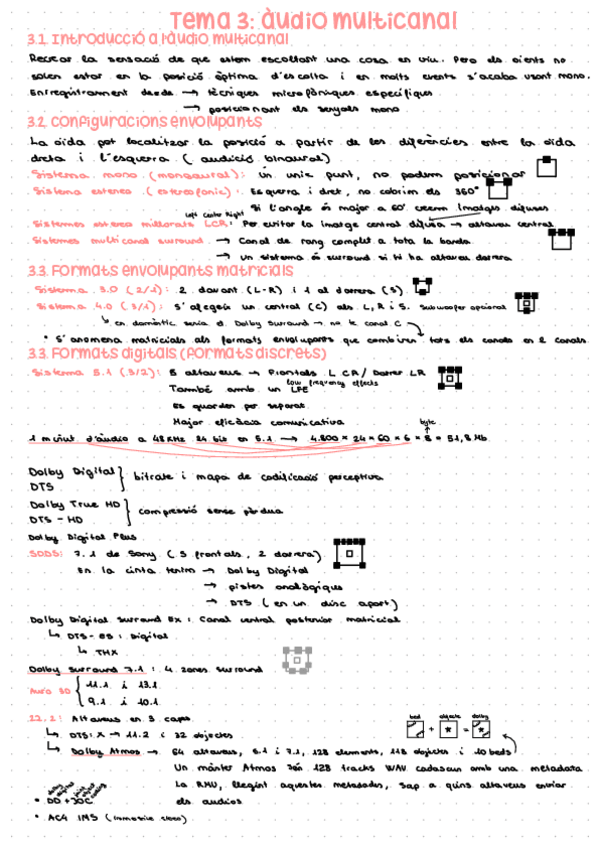 Tema 3: àudio multicanal
3.1. Introducció a l'àudio multicanal
Recrear la sensació de que estem escoltant una cosa en viu. Pero els oients no
solen estar en la posició òptima d'escolta i en molts events s'acaba usant mono.
Enregistrament desde → tècniques microfòniques específiques
→ posicionant els senyals mono
3.2. Configuracions envolupants
La oïda pot localitzar la posició a partir de les diferències entre la oïda
dreta i l'esquerra (audició binaural)
Sistema mono (monoaural): un unic punt, no podem posicionar
Sistema estereo (estereofonic): Esquerra i dret, no cobrim els 360°
Si l'angle és major a 60° creem imatges difuses
Left Center Right
Sistemes estereo millorats LCR: Per evitar la imatge central difusa → altaveu central
Sistemes multicanal surround → Canal de rang complet a tota la banda
→ Un sistema és surround si hi ha altaveu darrera
3.3. Formats envolupants matricials
Sistema 3.0 (2/1): 2 davant (L-R) i 1 al darrera (S)
Sistema 4.0 (3/1): S'afegeix un central (C) als L, R i S. Subwoofer opcional
↳ en domèstic seria el Dolby Surround → no te canal C
• S'anomena matricials als formats envolupants que combinen tots els canals en 2 canals
3.3. Formats digitals (formats discrets)
Sistema 5.1 (3/2): 5 altaveus → Frontals L CR/ Darrer LR
low frequency effects
També amb un LFE
Es guarden per separat
Major eficàcia comunicativa
byte
1 minut d'àudio a 48KHz 24 bit en 5.1 → 4.800 × 24 × 60 × 6 ÷ 8 = 51,8 Mb
Dolby Digital
DTS
bitrate i mapa de codificació perceptiva
Dolby True HD
DTS - HD
compressió sense pèrdua
Dolby Digital Plus
SDDS: 7.1 de Sony (5 frontals, 2 darrera)
En la cinta tenim → Dolby Digital
→ pistes analògiques
→ DTS (en un disc apart)
Dolby Digital Surround Ex: Canal central posterior matricial
↳ DTS-ES: Digital
↳ THX
Dolby Surround 7.1: 4 zones surround
Auro 3D
11.1 i 13.1
9.1 i 10.1
22.2: Altaveus en 3 capes
bed objecte dolby
↳ DTS:X → 11.2 i 32 objectes
↳ Dolby Atmos → 64 altaveus, 5.1 i 7.1, 128 elements, 118 objectes i 10 beds
Un màster Atmos 128 tracks WAV cadascun amb una metadata
La RMU, llegint aquestes metadades, sap a quins altaveus enviar
els audios
• DD + JOC
• AC4 IMS (immersive stereo)